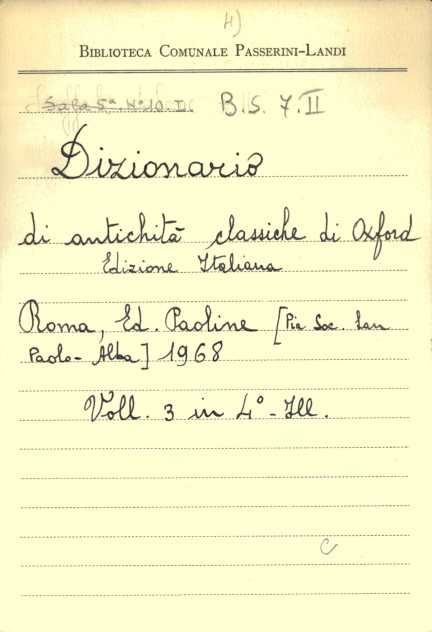 4)
BIBLIOTECA COMUNALE PASSERINI-LANDI
Sala 5ª. Nº 10. D. B. S. 7. II
Dizionario
di antichità classiche di Oxford
Edizione Italiana
Roma, Ed. Paoline [Pia Soc. San
Paolo - Alba] 1968
Voll. 3 in 4º - Ill.
C